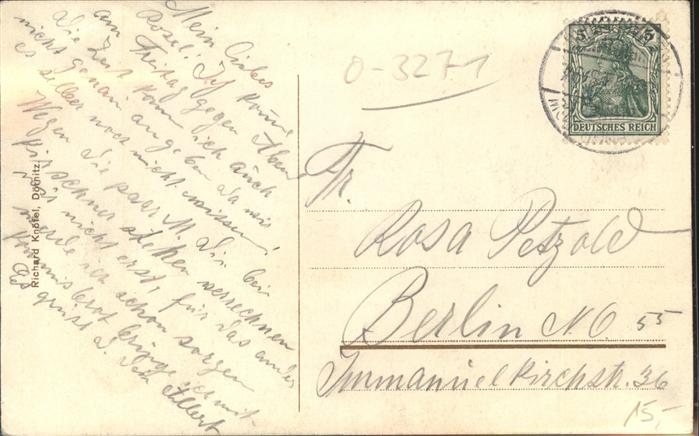 Mein liebes
Rosel! Ich komme
am Freitag gegen Aben
die Zeit kann ich auch
nicht genau angeben da wir
es selber noch nicht wissen!
Wegen die paar M die bei
Kirschner stehen verrechnen
nicht erst, für das andre
werde ich schon sorgen
bringe ich mit.
Es grüßt d. Dein Albert
Richard Knötel, Dömitz
0-3271
5 5
DEUTSCHES REICH
Fr.
Rosa Petzold
Berlin NO. 55
Immanuelkirchstr. 36
15,-